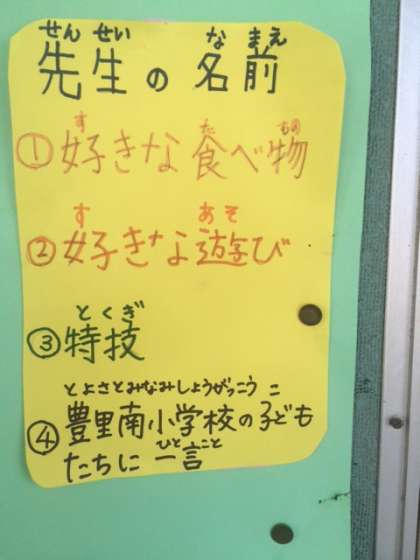 せんせい なまえ
先生の名前
す た もの
①好きな食べ物
す あそ
②好きな遊び
とくぎ
③特技
とよさとみなみしょうがっこう こ
④豊里南小学校の子ども
ひとこと
たちに一言